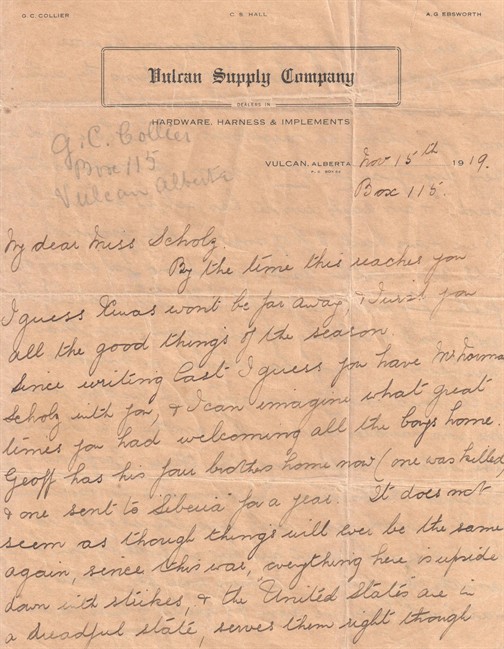 G. C. COLLIER C. S. HALL A. G. EBSWORTH
Vulcan Supply Company
DEALERS IN
HARDWARE, HARNESS & IMPLEMENTS
G. C. Collier
Box 115
Vulcan Alberta
VULCAN, ALBERTA Nov 15th 1919.
Box 115.
My dear Miss Scholz.
By the time this reaches you
I guess Xmas wont be far away, & I wish you
all the good things of the season.
Since writing last I guess you have Mr Norman
Scholz with you, & I can imagine what great
times you had welcoming all the boys home.
Geoff has his four brothers home now (one was killed)
& one sent to "Siberia" for a year. It does not
seem as though things will ever be the same
again, since this war, everything here is upside
down with strikes, & the "United States" are in
a dreadful state, serves them right through